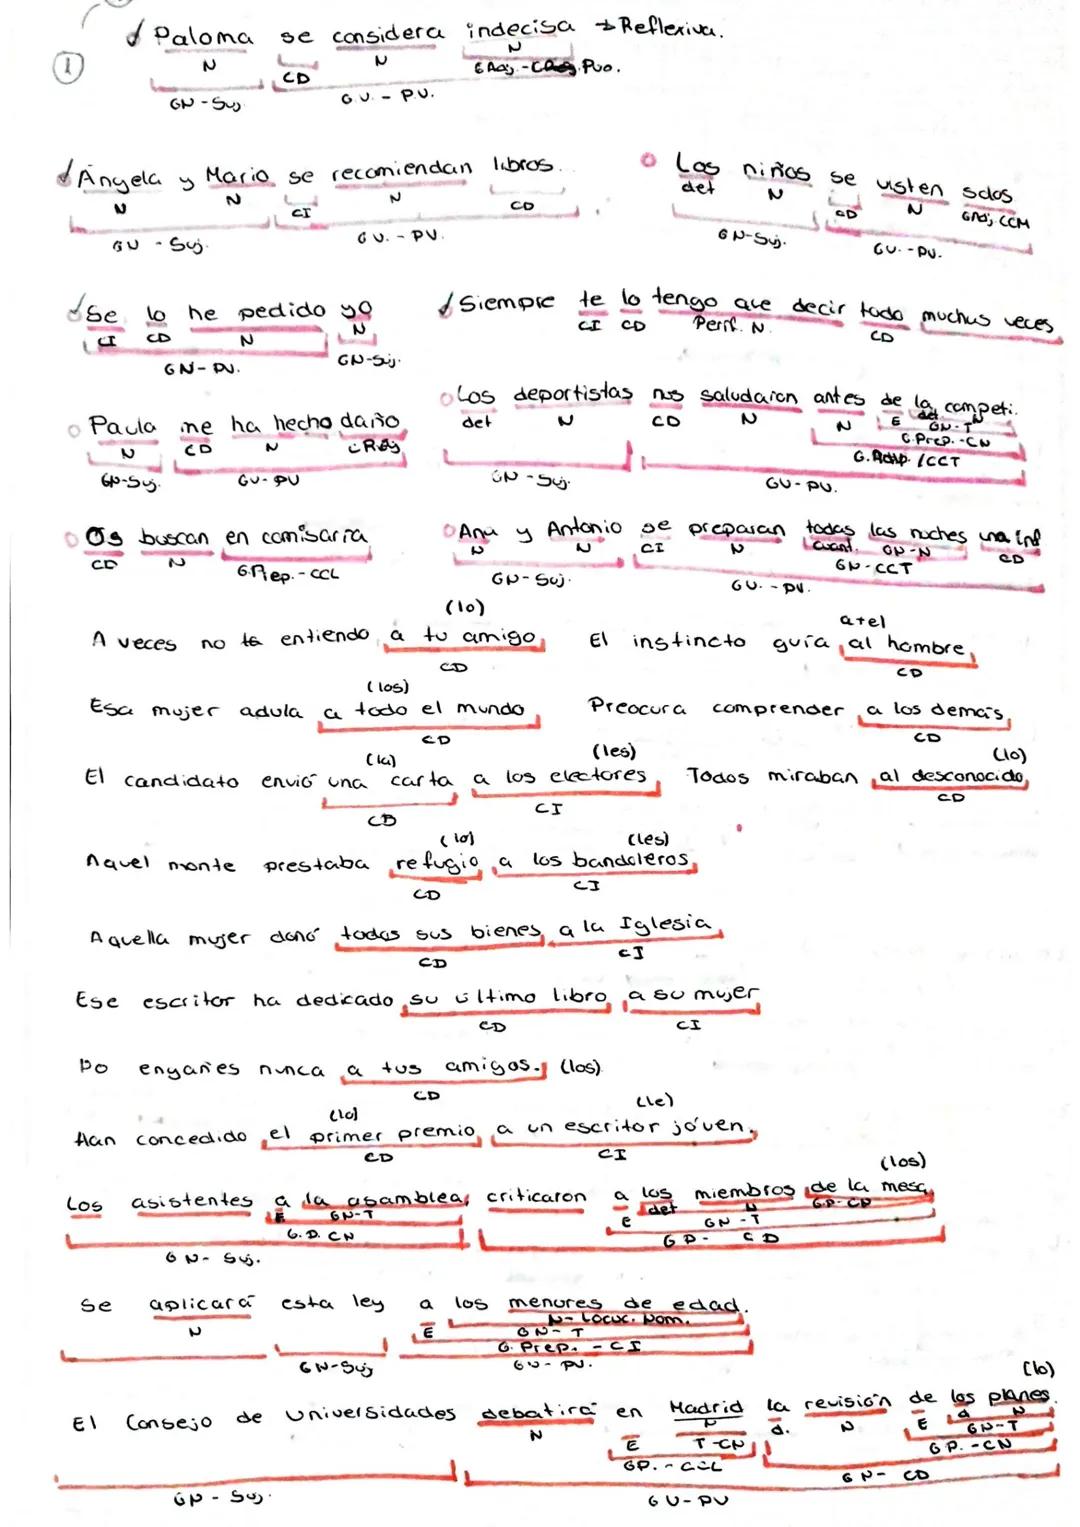 ① Paloma se considera indecisa → Reflexiva.
N CD N N
GAdj - Pvo.
GN - Suj. G.V. - P.V.
Ángela y Mario se recomiendan libros.
N N CI N CD
GU - Suj. GV. - PV.
Los niños se visten solos
det N CD N GAdj, CCM
GN-Suj. GV. - PV.
Se lo he pedido yo
CI CD N N
GN - PV. GN-Suj.
Siempre te lo tengo que decir todo muchas veces
CI CD Perif. N. CD
Paula me ha hecho daño
N CD N CReg
GN-Suj. GV - PV
Los deportistas nos saludaron antes de la competi.
det N CD N N E det N
GN-T
G.Prep. - CN
G.Adv. / CCT
GN - Suj. GV - PV.
Os buscan en comisaría
CD N G.Prep. - CCL
Ana y Antonio se preparan todas las noches una inf
N N CI N Cuant. GN-N CD
GN - CCT
GN - Suj. GV. - PV.
(lo)
A veces no entiendo a tu amigo
CD
a+el
El instinto guía al hombre
CD
(los)
Esa mujer adula a todo el mundo
CD
Preocura comprender a los demás
CD
(la) (les)
El candidato envió una carta a los electores
CD CI
(lo)
Todos miraban al desconocido
CD
(lo) (les)
Aquel monte prestaba refugio a los bandoleros
CD CI
Aquella mujer donó todos sus bienes a la Iglesia
CD CI
Ese escritor ha dedicado su último libro a su mujer
CD CI
No engañes nunca a tus amigos. (los)
CD
(lo) (le)
Han concedido el primer premio a un escritor jóven.
CD CI
(los)
Los asistentes a la asamblea criticaron a los miembros de la mesa
E GN-T E det N GP - CN
G.P. CN GN - T
GP - CD
GN - Suj.
Se aplicará esta ley a los menores de edad.
N E N - Locuc. Nom.
GN - T
G. Prep. - CI
GN-Suj GV - PV.
(lo)
El Consejo de Universidades debatirá en Madrid la revisión de los planes.
N E N d. N E d N
T-CN GN-T
GP. - CCL GP. - CN
GN - CD
GN - Suj. GV - PV